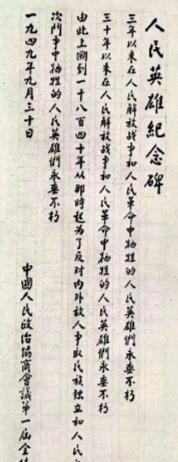 人民英雄紀念碑
三年以来在人民解放战争和人民革命中牺牲的人民英雄們永垂不朽
三十年以来在人民解放战争和人民革命中牺牲的人民英雄們永垂不朽
由此上溯到一千八百四十年从那時起为了反对内外敌人争取民族独立和人民
次鬥争中牺牲的人民英雄們永垂不朽
一九四九年九月三十日
中國人民政治協商會議第一届全